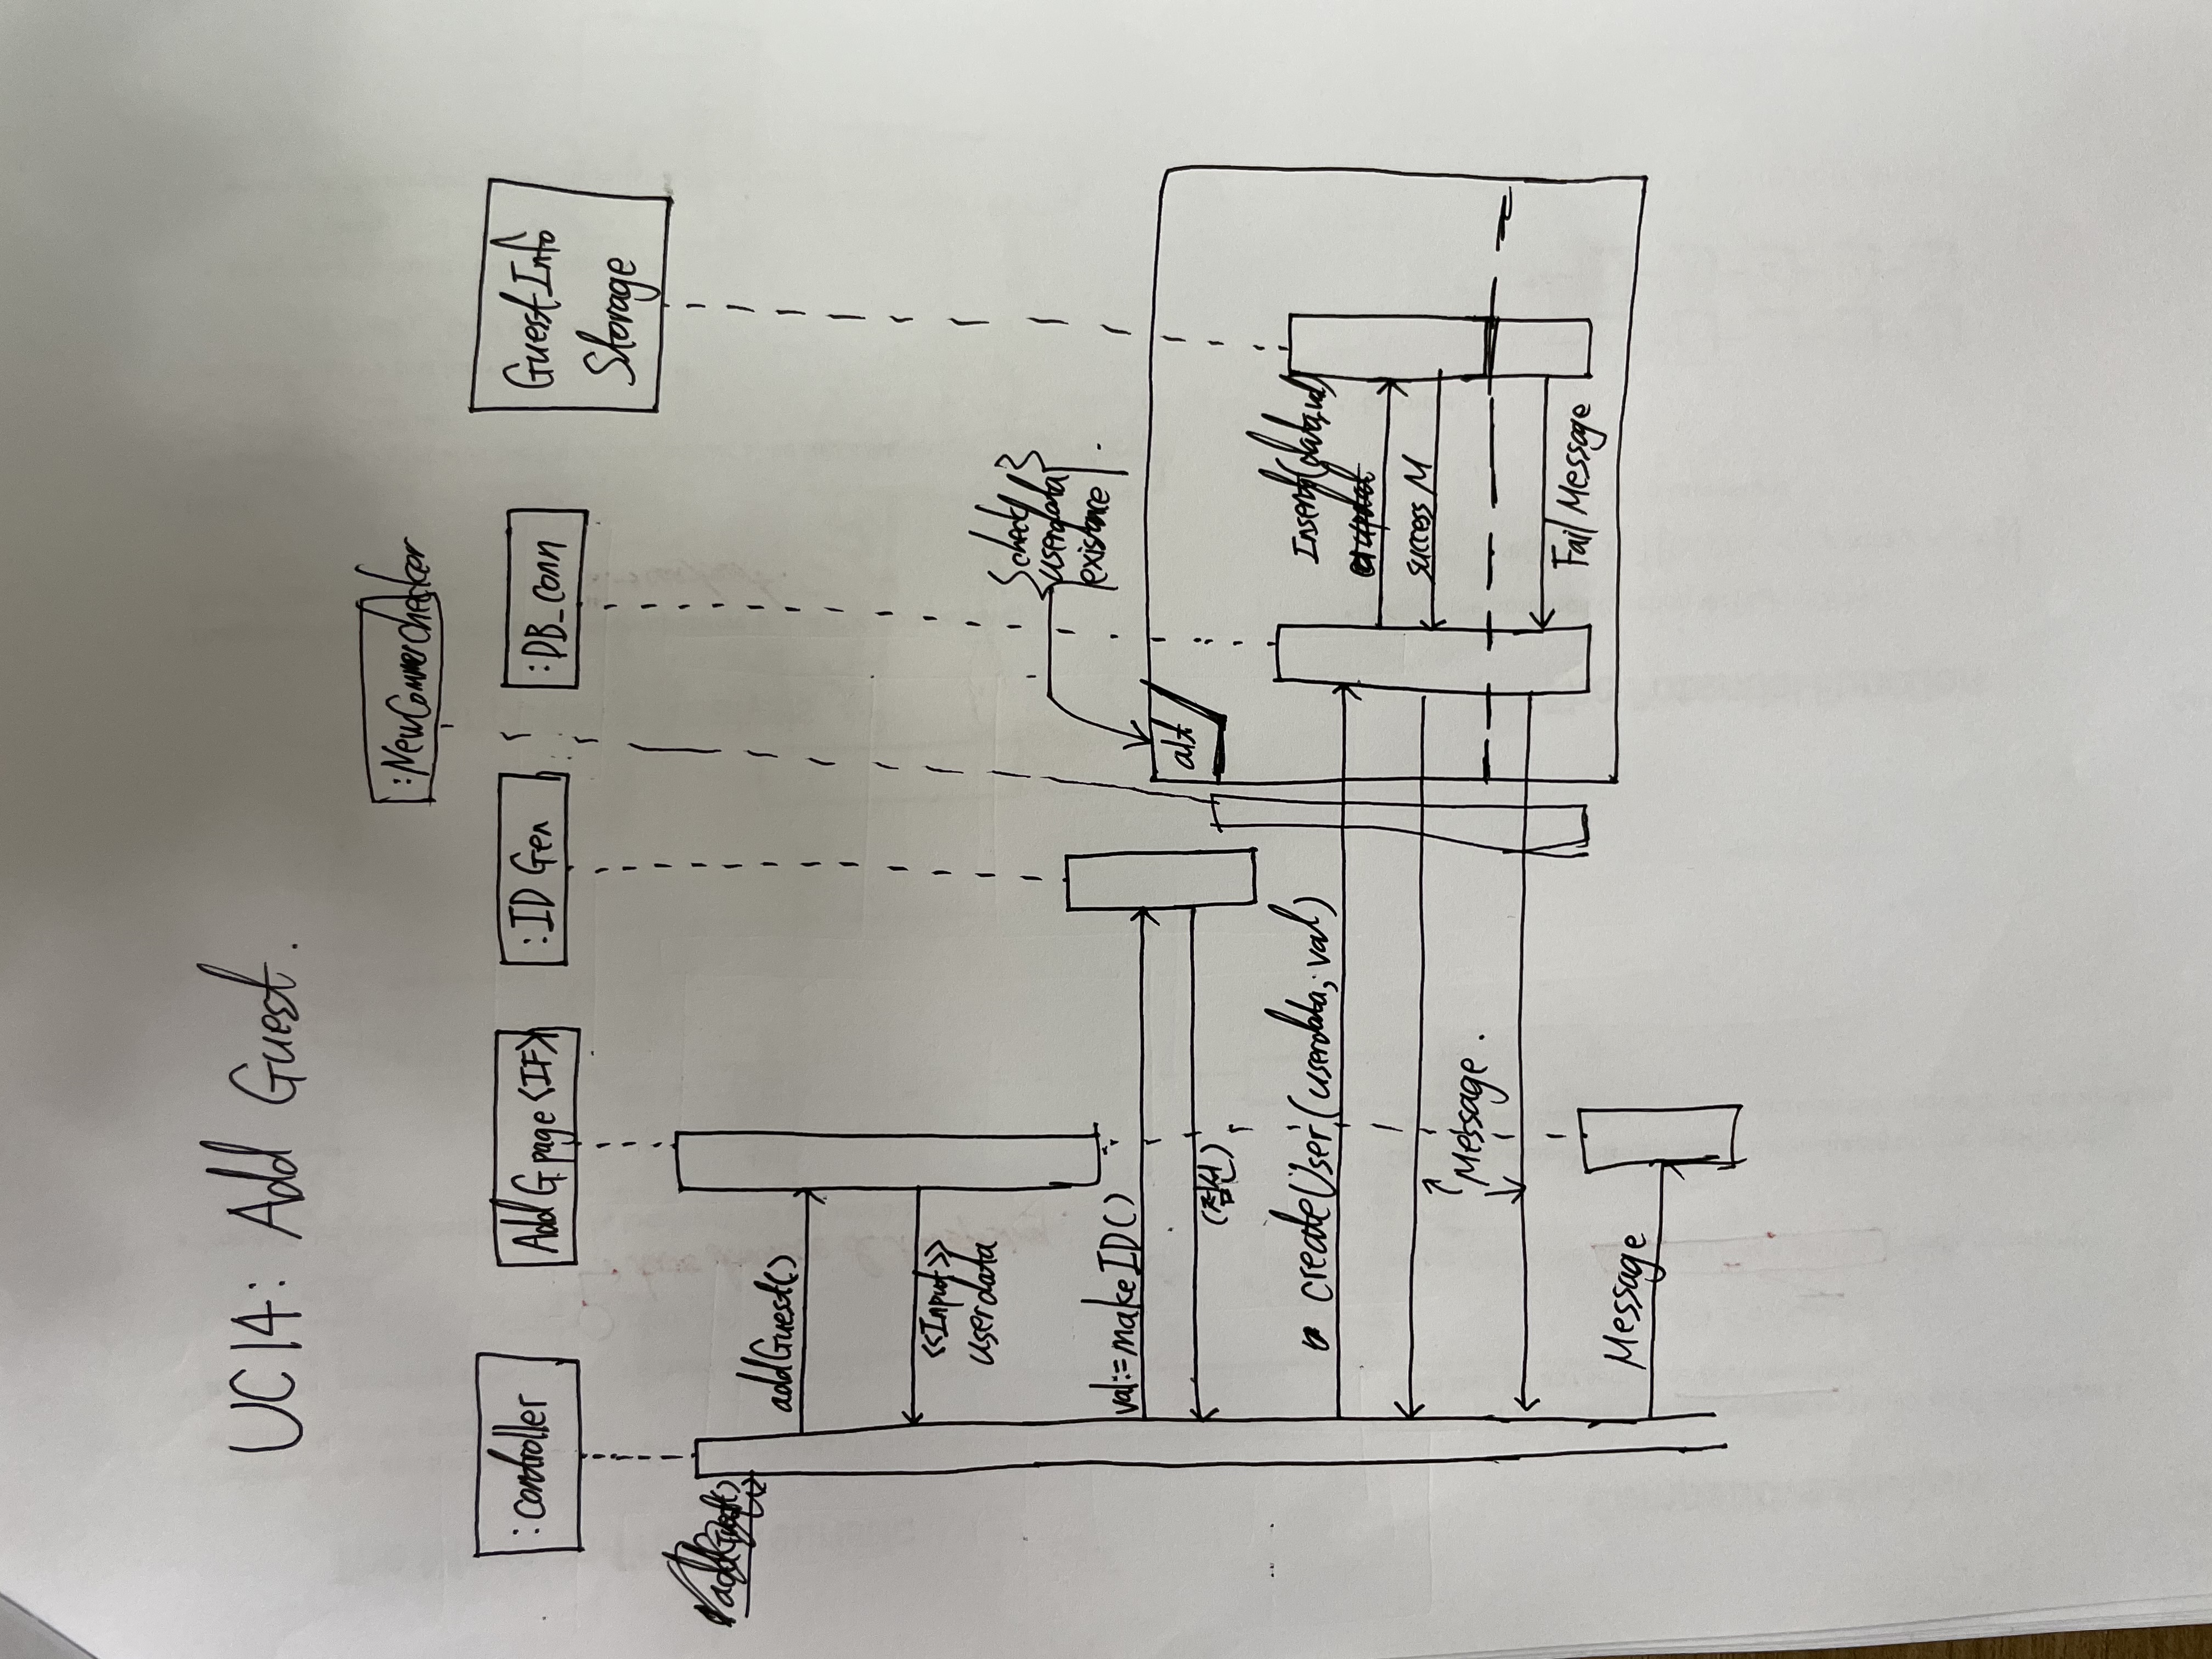 UC14: Add Guest.
:NewCommerchecker
:controller
Add G page <IF>
:ID Gen
:DB_conn
GuestInfo
Storage
addGuest()
addGuest()
<<Input>>
userdata
{check
userdata
existance}.
val:=makeID()
alt
(점선)
createUser(userdata, val)
Insert(data,val)
success M
Message.
Fail Message
Message